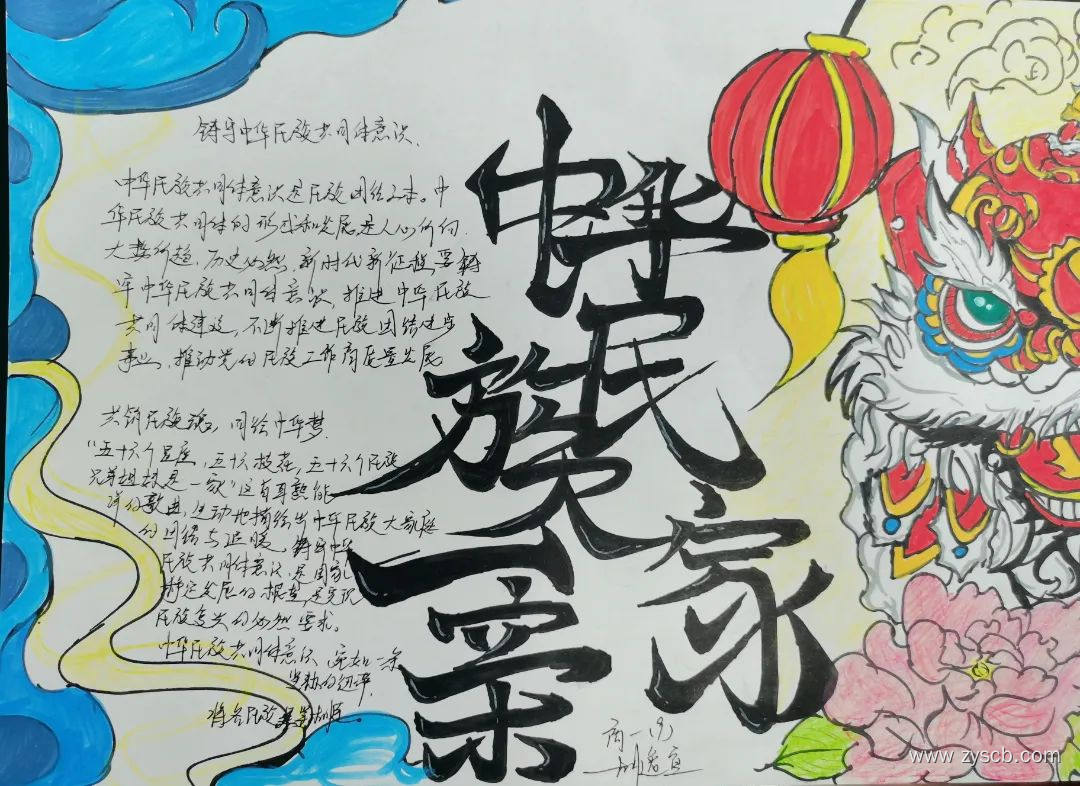 铸牢中华民族共同体意识、
中华民族共同体意识是民族团结之本。中
华民族共同体的形成和发展是人心所向、
大势所趋、历史必然，新时代新征程要铸
牢中华民族共同体意识，推进中华民族
共同体建设，不断推进民族团结进步
事业，推动党的民族工作高质量发展
共铸民族魂，同绘中华梦
“五十六个星座，五十六枝花，五十六个民族
兄弟姐妹是一家”这首耳熟能
详的歌曲，生动地描绘出中华民族大家庭
的团结与温暖。铸牢中华
民族共同体意识，是国家
稳定发展的根基，是实现
民族复兴的必然要求。
中华民族共同体意识，宛如一条
坚韧的纽带
将各民族
中华
民族
一家
一家亲
高一(9)
www.zyscb.com